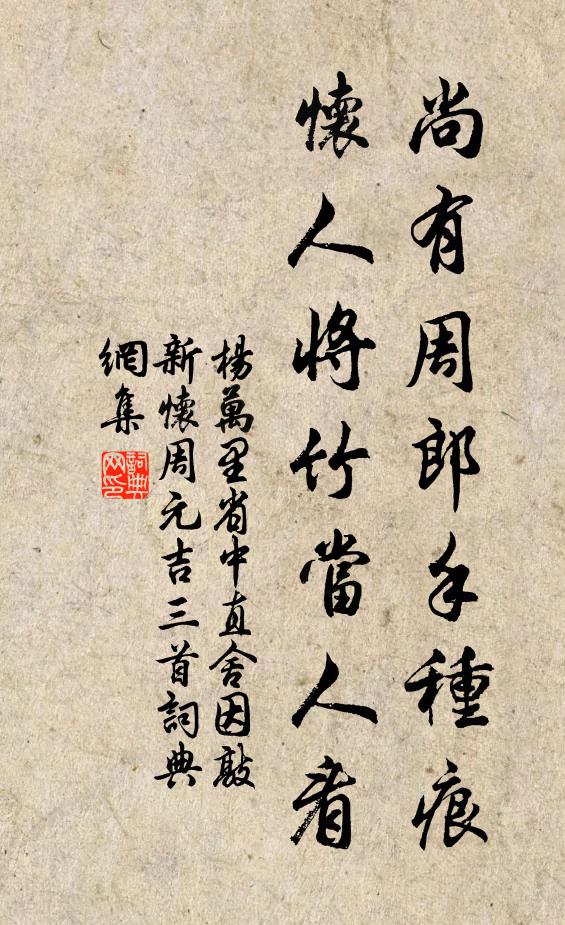 尚有周郎手種痕
懷人將竹當人看
楊萬里省中直舍因敲
新懷周元吉三首詞典
網集
詞典網印